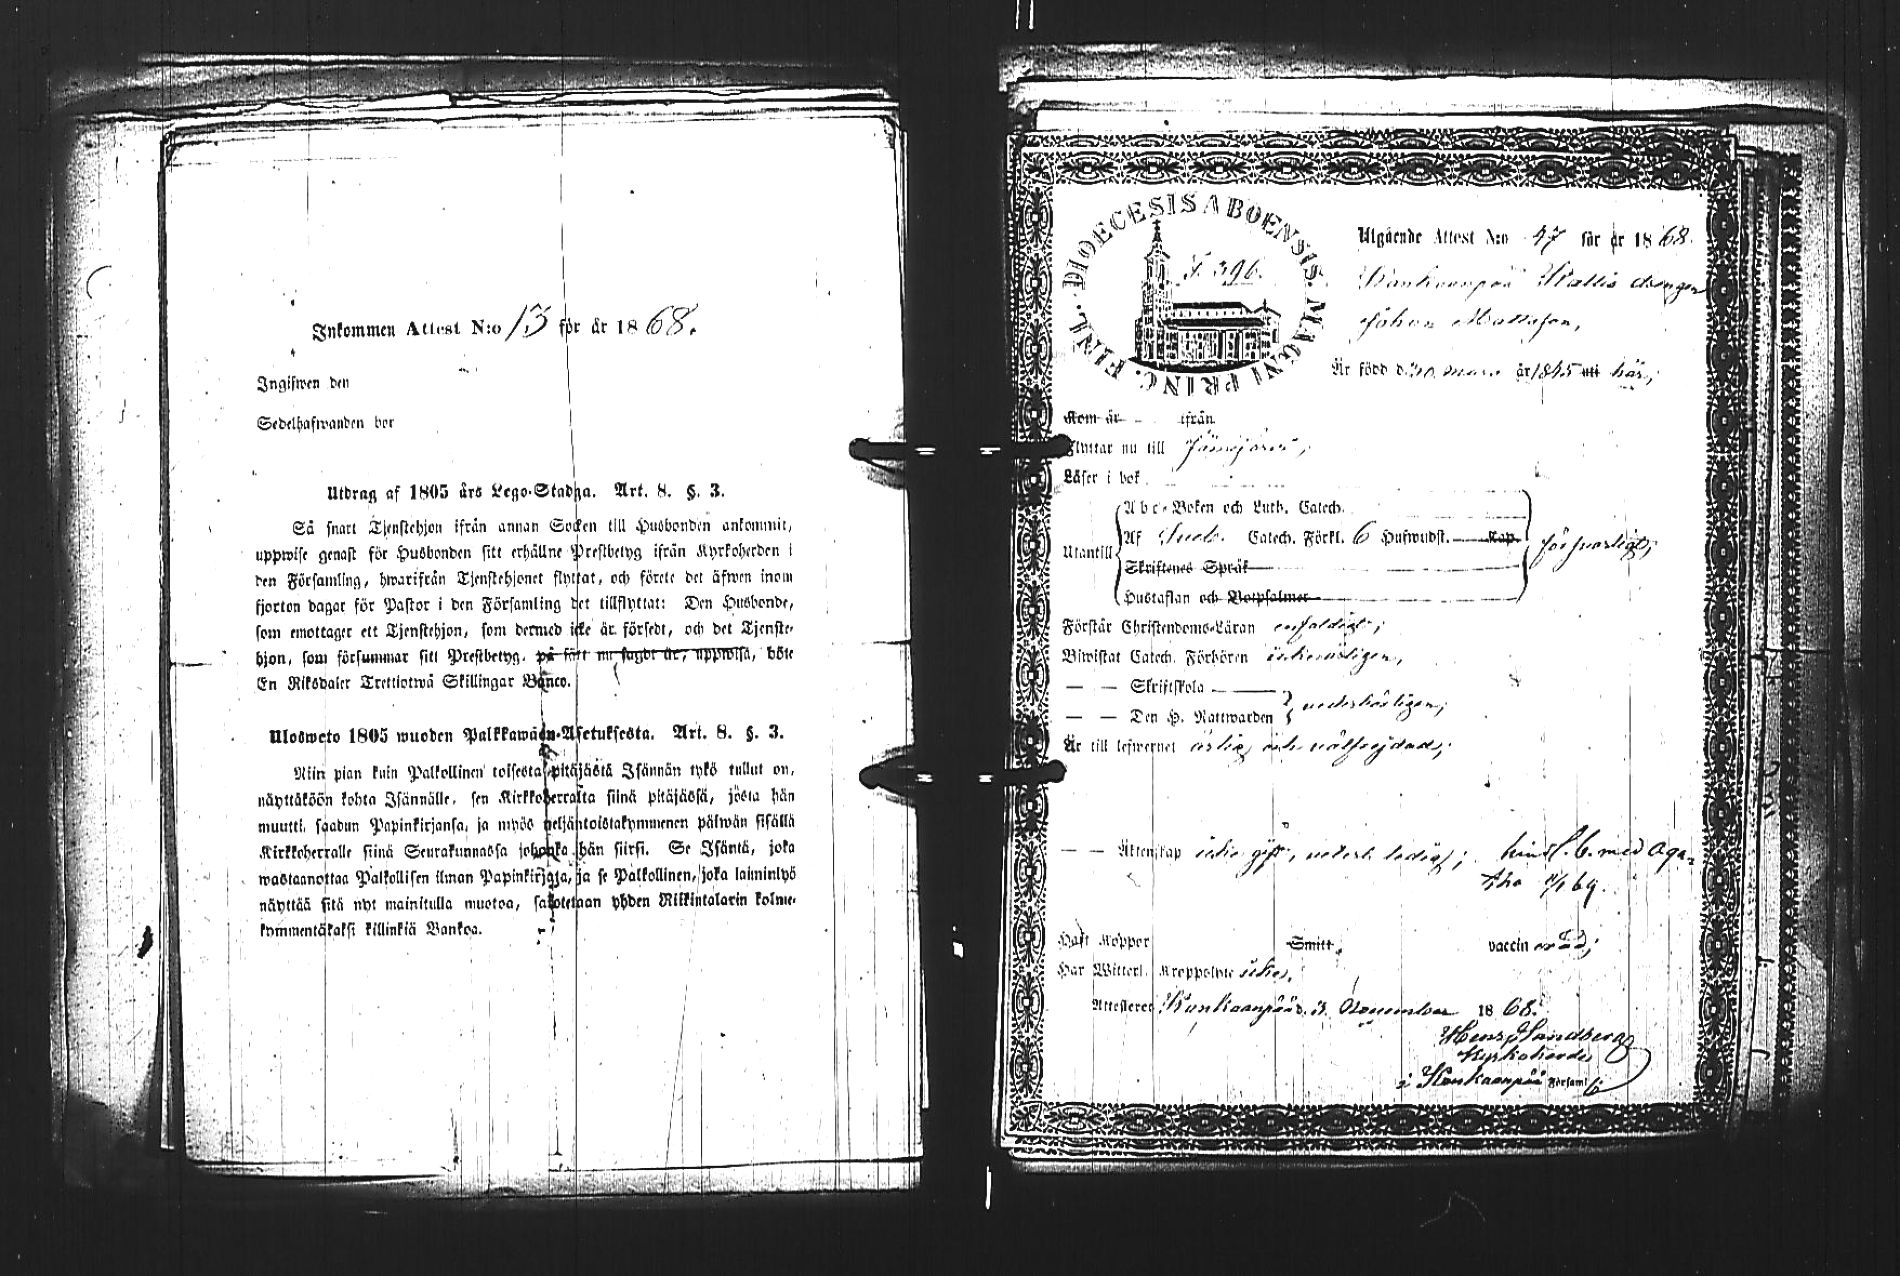 Inkommen Attest N:o 13 för år 1868.
Ingifwen den
Sedelhafwanden bor
Utdrag af 1805 års Lego-Stadga. Art. 8. §. 3.
Så snart Tjenstehjon ifrån annan Socken till Husbonden ankommit,
uppwise genast för Husbonden sitt erhållne Prestbetyg ifrån Kyrkoherden i
den Församling, hwarifrån Tjenstehjonet flyttat, och förete det äfwen inom
fjorton dagar för Pastor i den Församling det tillflyttat: Den Husbonde,
som emottager ett Tjenstehjon, som dermed icke är försedt, och det Tjenste-
hjon, som försummar sitt Prestbetyg, på sätt nu sagdt är, uppwisa, böte
En Riksdaler Trettiotwå Skillingar Banco.
Ulosweto 1805 wuoden Palkkawäen-Asetuksesta. Art. 8. §. 3.
Niin pian kuin Palkollinen toisesta pitäjästä Isännän tykö tullut on,
näyttäköön kohta Isännälle, sen Kirkkoherralta siinä pitäjässä, josta hän
muutti, saadun Papinkirjansa, ja myös neljäntoistakymmenen päiwän sisällä
Kirkkoherralle siinä Seurakunnassa johonka hän siirsi. Se Isäntä, joka
wastaanottaa Palkollisen ilman Papinkirjaja, ja se Palkollinen, joka laiminlyö
näyttää sitä nyt mainitulla muotoa, sakotetaan yhden Riikintalarin kolme-
kymmentäkaksi killinkiä Bankoa.
DIOECESIS ABOENSIS. MAGNI PRINC. FINL.
F. 396.
Utgående Attest N:o 47 för år 1868.
Kankaanpää Kallis drengen
Johan Mattsson,
Är född d. 30 mars år 1845 uti här;
Kom år ifrån
Flyttar nu till Jämijärvi;
Läser i bok
Abc-Boken och Luth. Catech.
Utantill Af Sveb. Catech. Förkl. 6 Hufwudst. Kap. försvarligt;
Skriftenes Språk
Hustaflan och Botpsalmer
Förstår Christendoms-Läran enfaldigt;
Biwistat Catech. Förhören
— — Skriftskola
— — Den H. Nattwarden vederbörligen;
Är till lefwernet ärlig och välfrejdad;
— — Äktenskap icke gift, ledig; med Aga-
tha 69.
Haft Koppor Smitt. vaccinerad;
Har Witterl. Kroppslyte icke.
Attesteret Kankaanpää d. November 1868.
Sandberg
Kyrkoherde
i Kankaanpää Församl.